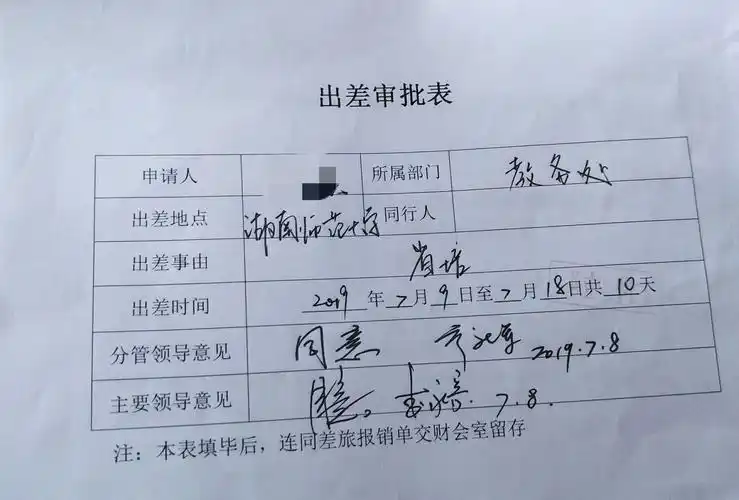 出差审批表
申请人 所属部门 教务处
出差地点 湖南师范大学 同行人
出差事由 省培
出差时间 2019 年 7 月 9 日至 7 月 18 日共 10 天
分管领导意见 同意 2019.7.8
主要领导意见 同意。 7.8.
注：本表填毕后，连同差旅报销单交财会室留存